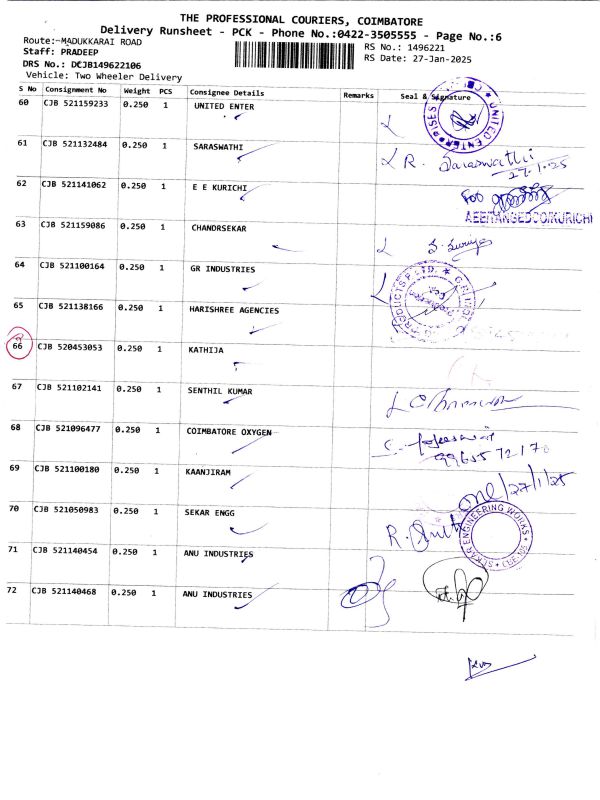 THE PROFESSIONAL COURIERS, COIMBATORE
Delivery Runsheet - PCK - Phone No.:0422-3505555 - Page No.:6
Route:-MADUKKARAI ROAD
RS No.: 1496221
Staff: PRADEEP
RS Date: 27-Jan-2025
DRS No.: DCJB149622106
Vehicle: Two Wheeler Delivery
S No Consignment No Weight PCS Consignee Details Remarks Seal & Signature
60 CJB 521159233 0.250 1 UNITED ENTER
UNITED ENTERPRISES
61 CJB 521132484 0.250 1 SARASWATHI
R. Saraswathi
27.1.25
62 CJB 521141062 0.250 1 E E KURICHI
for
AEE/TANGEDCO/KURICHI
63 CJB 521159086 0.250 1 CHANDRSEKAR
S. Suriya
64 CJB 521100164 0.250 1 GR INDUSTRIES
65 CJB 521138166 0.250 1 HARISHREE AGENCIES
66 CJB 520453053 0.250 1 KATHIJA
67 CJB 521102141 0.250 1 SENTHIL KUMAR
68 CJB 521096477 0.250 1 COIMBATORE OXYGEN
69 CJB 521100180 0.250 1 KAANJIRAM
27/1/25
70 CJB 521050983 0.250 1 SEKAR ENGG
SEKAR ENGINEERING WORKS
71 CJB 521140454 0.250 1 ANU INDUSTRIES
72 CJB 521140468 0.250 1 ANU INDUSTRIES